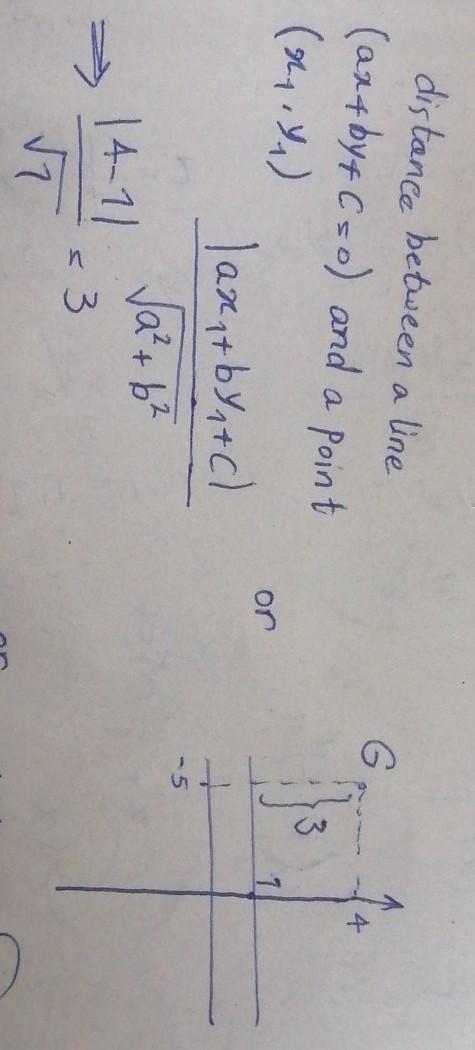 distance between a line
(ax+by+c=0) and a point
(x₁, y₁)
|ax₁+by₁+c|
√a²+b²
⇒ |4-1| = 3
√1
or
G
4
3
1
-5